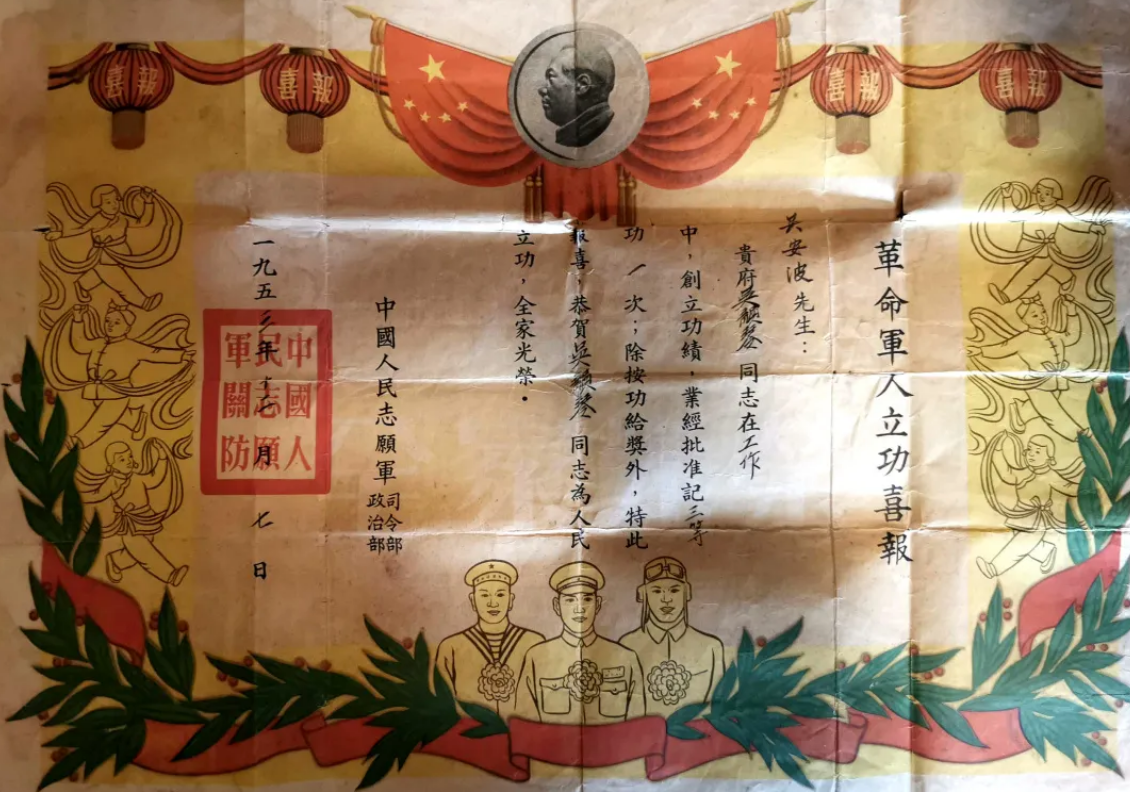 喜報
喜報
喜報
喜報
革命軍人立功喜報
吴安波先生：
貴府吴同志在工作
中，創立功績，業經批准記三等
功一次；除按功給獎外，特此
報喜，恭賀吴同志為人民
立功，全家光榮．
中國人民志願軍司令部政治部
一九五三年十一月七日
中國人民志願軍關防